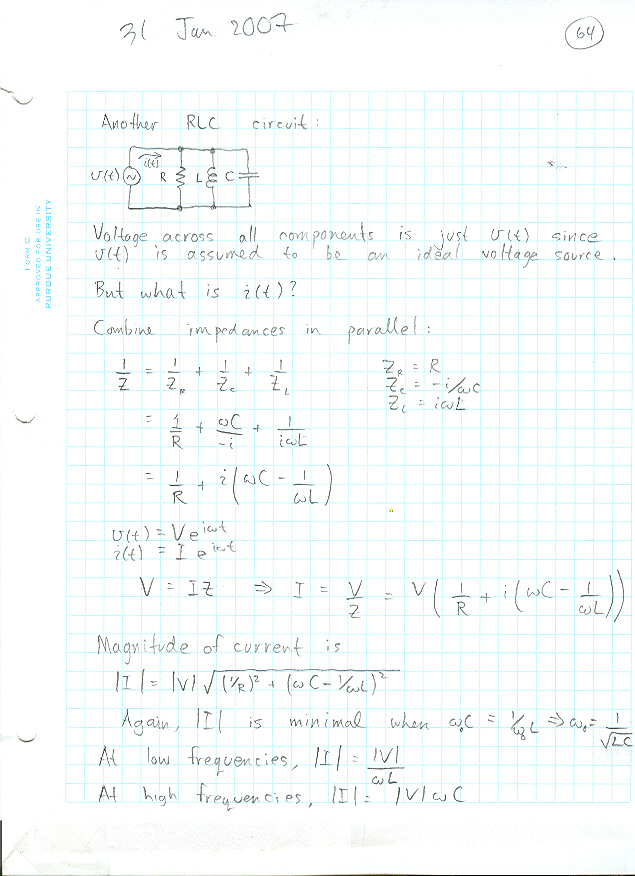 31 Jan 2007
64
Another RLC circuit:
v(t) i(t) R L C
FORM C
APPROVED FOR USE IN
PURDUE UNIVERSITY
Voltage across all components is just v(t) since
v(t) is assumed to be an ideal voltage source.
But what is i(t)?
Combine impedances in parallel:
1/Z = 1/Z_R + 1/Z_C + 1/Z_L
Z_R = R
Z_C = -i/ωC
Z_L = iωL
= 1/R + ωC/-i + 1/iωL
= 1/R + i(ωC - 1/ωL)
v(t) = V e^{iωt}
i(t) = I e^{iωt}
V = IZ ⇒ I = V/Z = V(1/R + i(ωC - 1/ωL))
Magnitude of current is
|I| = |V| √((1/R)² + (ωC - 1/ωL)²)
Again, |I| is minimal when ω₀C = 1/ω₀L ⇒ ω₀ = 1/√LC
At low frequencies, |I| = |V|/ωL
At high frequencies, |I| = |V|ωC